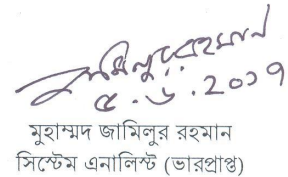 জামিলুর রহমান
৫.৬.২০১৭
মুহাম্মদ জামিলুর রহমান
সিস্টেম এনালিস্ট (ভারপ্রাপ্ত)